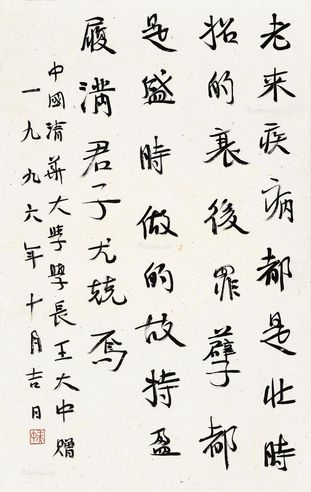 老来疾病都是壮時
招的衰後罪孽都
是盛時做的故持盈
履滿君子尤兢焉
中國清華大學學長王大中贈
一九九六年十月吉日